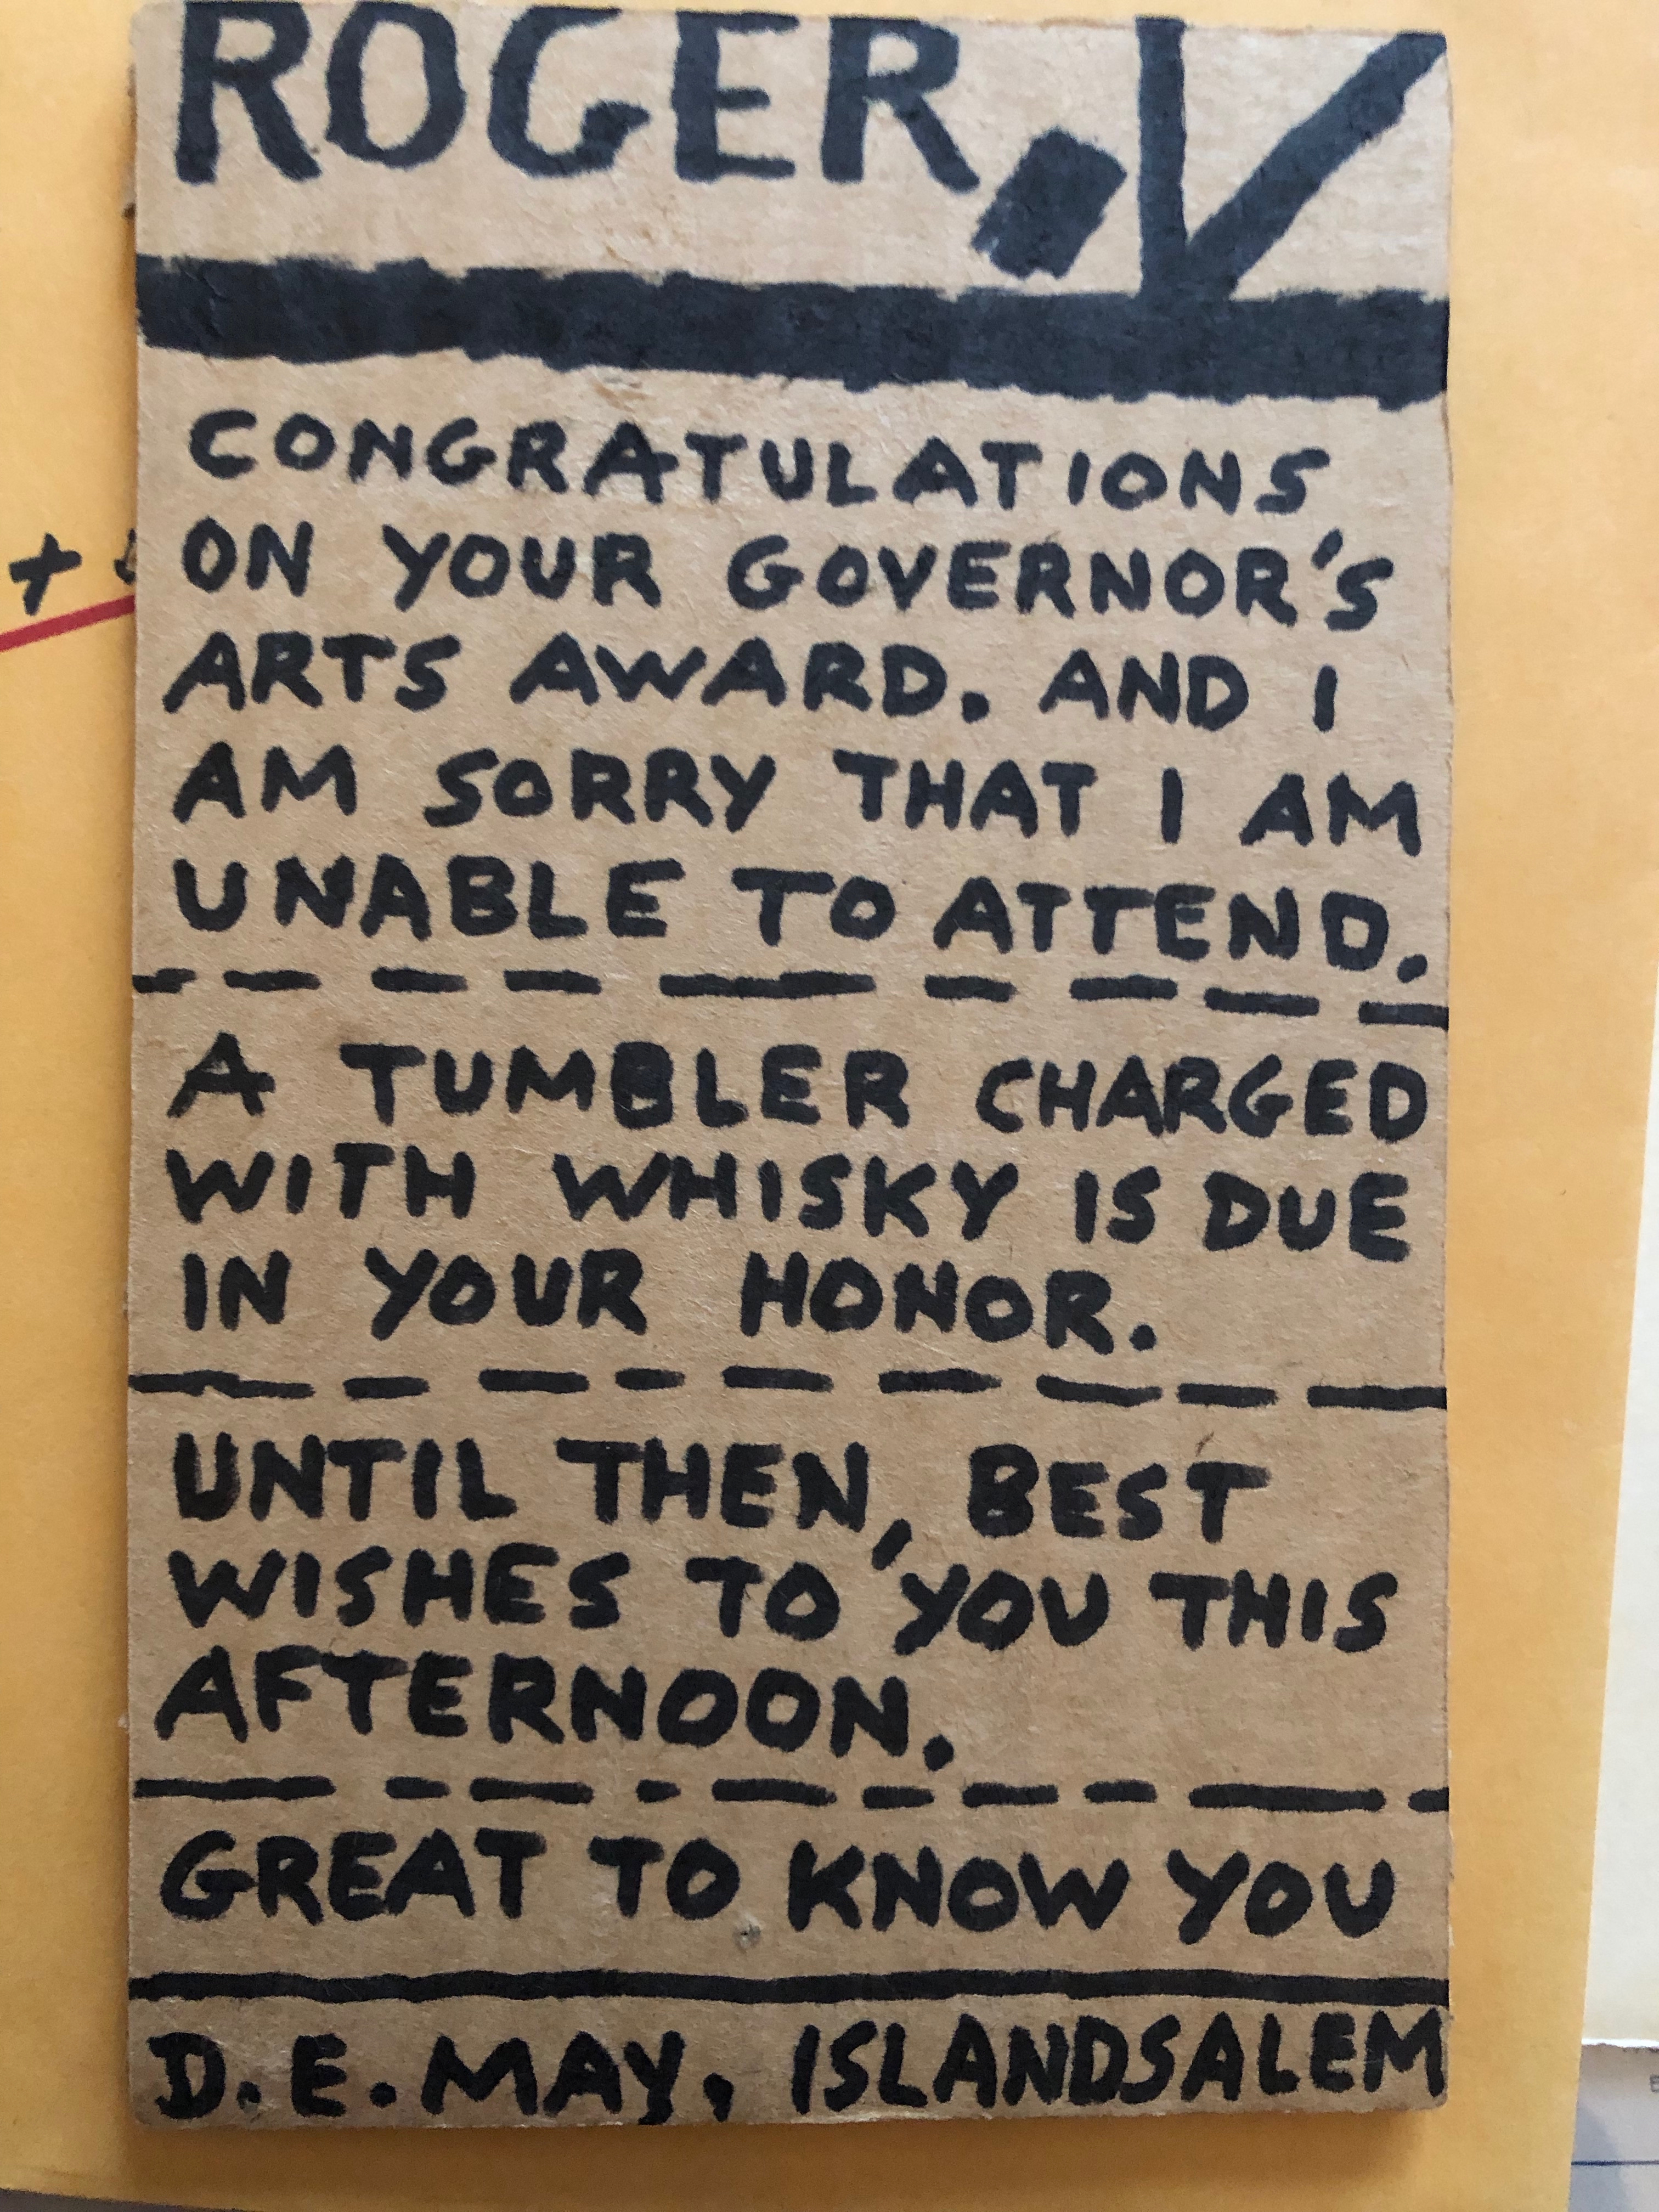 ROGER. V
CONGRATULATIONS
ON YOUR GOVERNOR'S
ARTS AWARD. AND I
AM SORRY THAT I AM
UNABLE TO ATTEND.
A TUMBLER CHARGED
WITH WHISKY IS DUE
IN YOUR HONOR.
UNTIL THEN, BEST
WISHES TO YOU THIS
AFTERNOON.
GREAT TO KNOW YOU
D.E. MAY, ISLANDSALEM
+